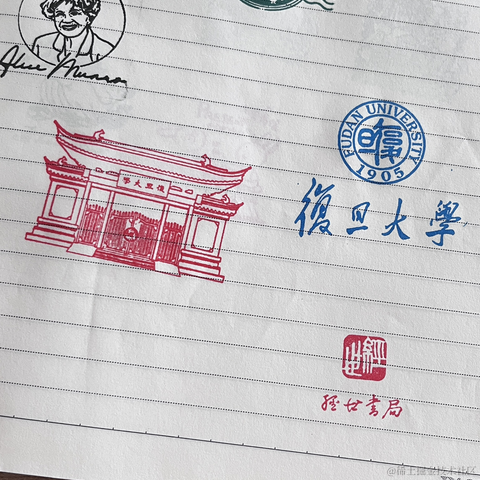 Alice Munro
復旦大學
FUDAN UNIVERSITY
復旦
1905
復旦大學
經世
經世書局
@稀土掘金技术社区